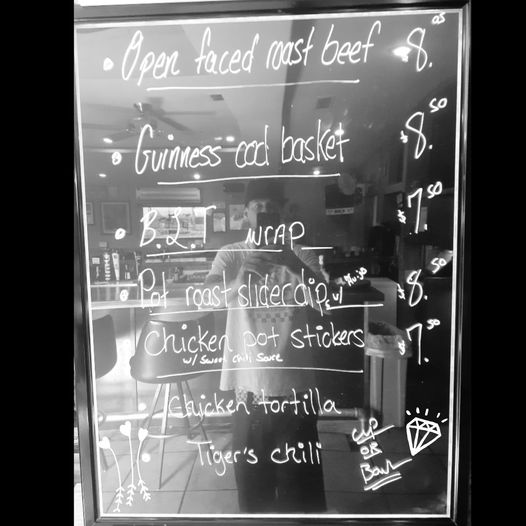 Open faced roast beef $8.
Guinness cod basket $8.50
B.L.T wrap $7.50
Pot roast slider dip w/ Au jus $8.50
Chicken pot stickers $7.50
w/ Sweet Chili Sauce
Chicken tortilla
Tiger's chili
Cup
OR
Bowl